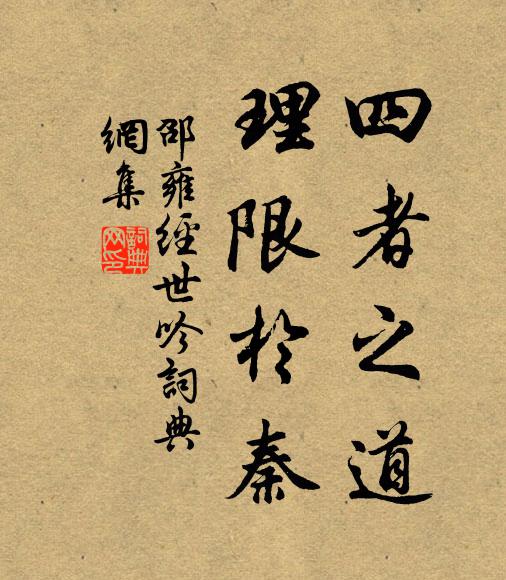 四者之道
理限於秦
邵雍經世吟詞典
網集
詞典
网印